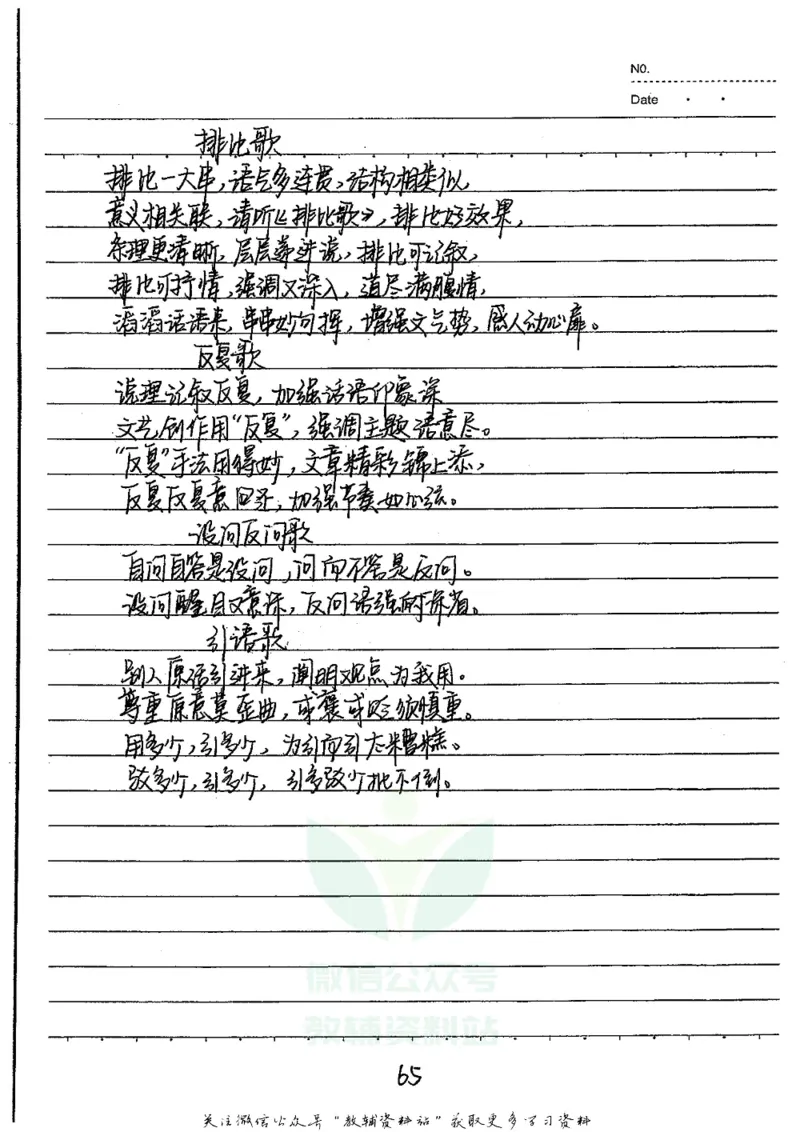 NO.
Date
排比歌
排比一大串,语气多连贯,结构相类似,
意义相关联,请听《排比歌》,排比好效果,
条理更清晰,层层递进说,排比可记叙,
排比可抒情,强调又深入,道尽满腹情,
滔滔话语来,串串妙句挥,增强文气势,感人动心扉。
反复歌
说理记叙反复,加强话语印象深
文艺创作用“反复”,强调主题语意尽。
“反复”手法用得妙,文章精彩锦上添,
反复反复意回还,加强节奏如心弦。
设问反问歌
自问自答是设问,问而不答是反问。
设问醒目又意深,反问语强的深省。
引语歌
别人原话引进来,阐明观点为我用。
尊重原意莫歪曲,或褒或贬须慎重。
用多少,引多少,为引而引太糟糕。
驳多少,引多少,引多驳少批不倒。
微信公众号
教辅资料站
65
关注微信公众号“教辅资料站”获取更多学习资料